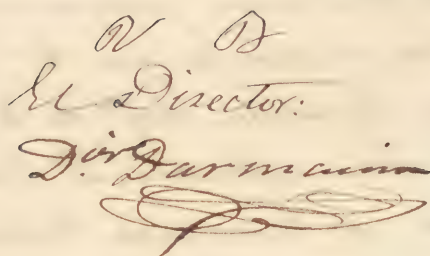 V B
El Director:
D.or Darmain